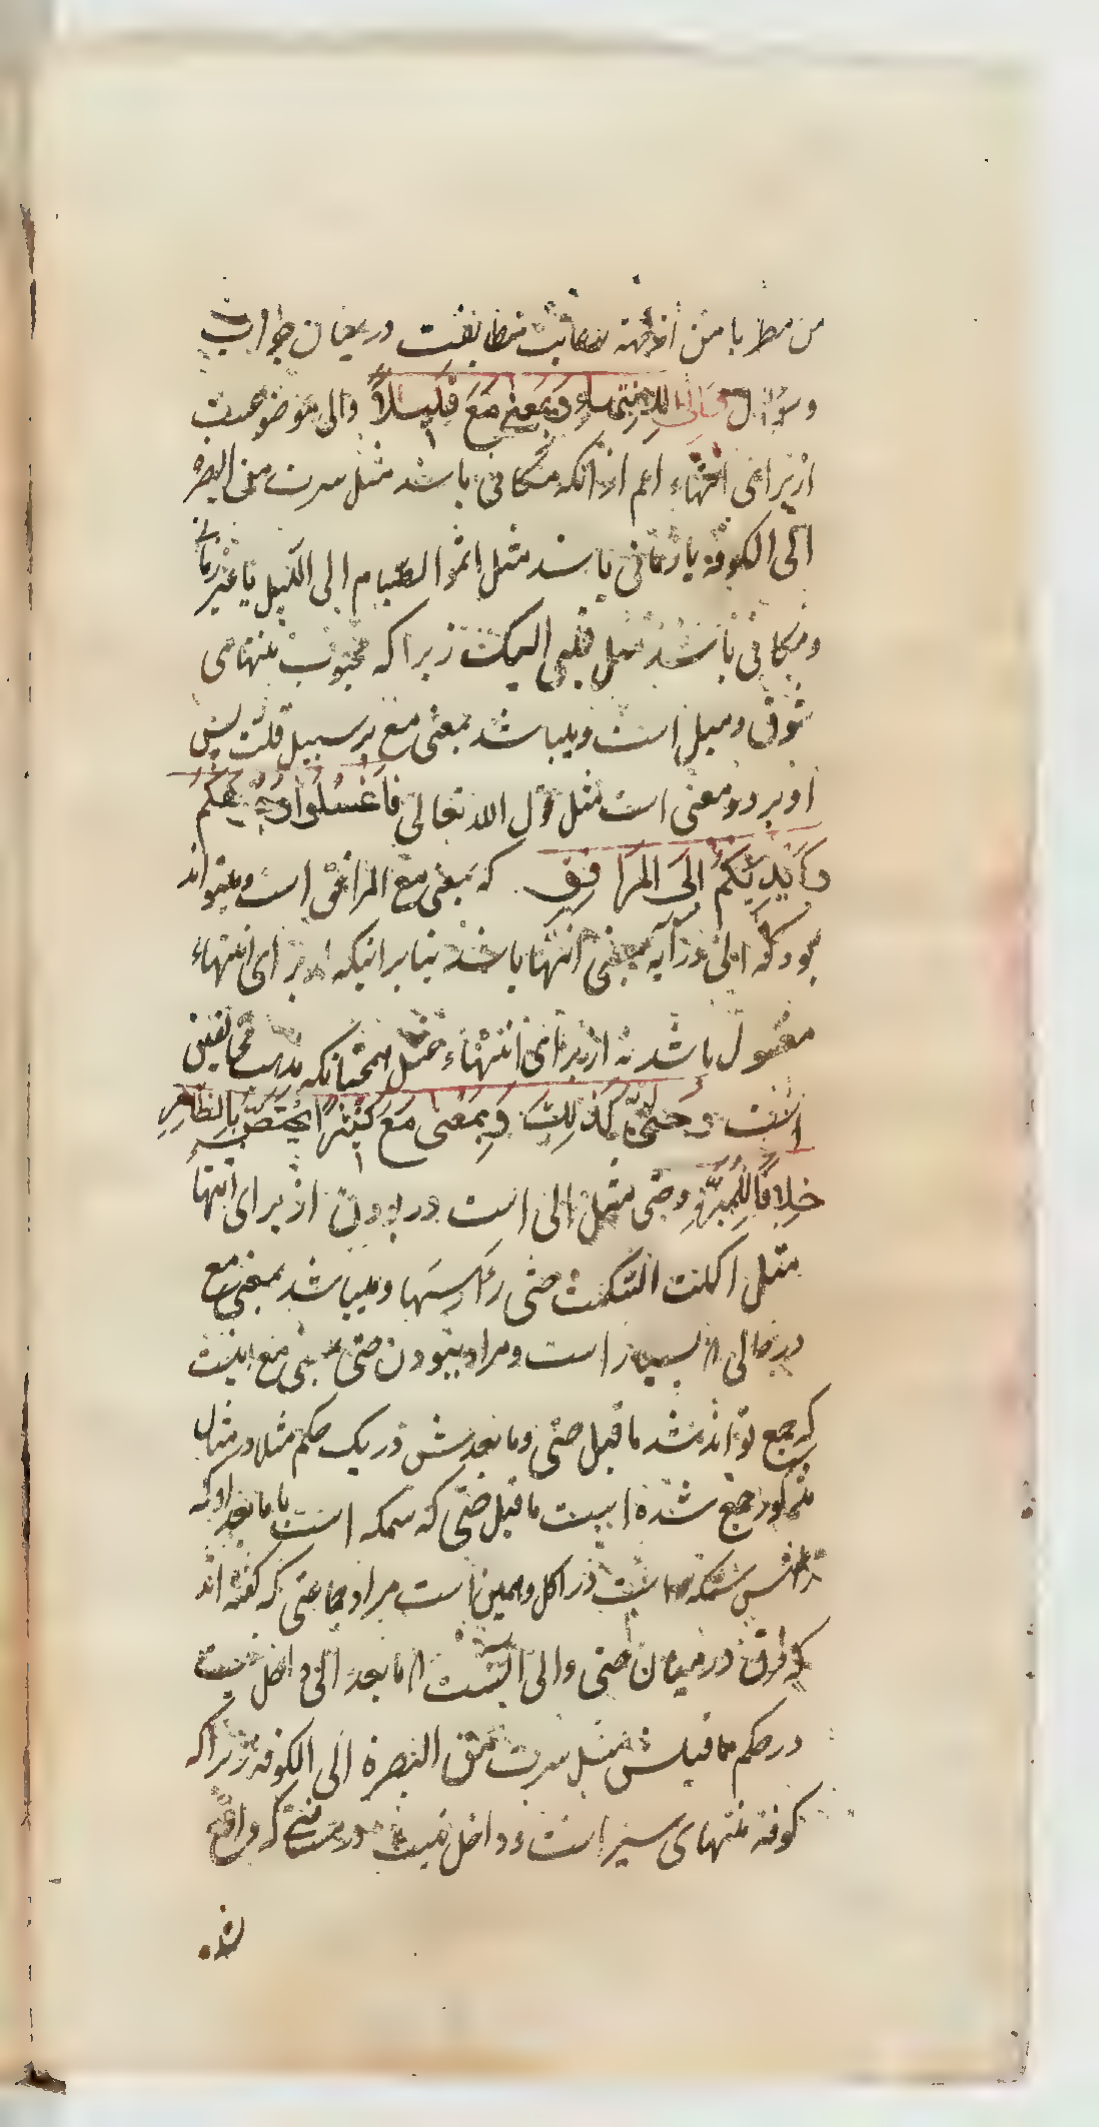 من مطر با من از جهة مطابقت در میان جواب
وسؤال و الی للانتهاء وبمعنی مع قلیلاً والی موضوعست
از برای انتهاء اعم از انکه مکانی باشد مثل سرت من البصره
الی الکوفه یا زمانی باشد مثل اتموا الصیام الی اللیل یا غیر زمانی
ومکانی باشد مثل قلبی الیک زیرا که محبوب منتهای
شوق ومیل است ومیباشد بمعنی مع بر سبیل قلت پس
او بر دو معنی است مثل قول الله تعالی فَاغسلوا وجوهکم
وَأَیدِیَکُم إِلَی المَرَافِقِ که بمعنی مع المرافق است ومیتواند
بود که الی در آیه بمعنی انتها باشد بنابر اینکه از برای انتهاء
مغسول باشد نه از برای انتهاء غسل همچنانکه مذهب مخالفین
است وَحَتّی کَذلِکَ وَبِمَعنی مَعَ کَثیراً یختصّ بِالظاهِرِ
خِلافاً لِلمُبَرَّدِ وحتی مثل الی است در بودن از برای انتها
مثل اکلت السمکة حتی رأسها ومیباشد بمعنی مع
در حالی که بسیار است ومراد ببودن حتی بمعنی مع اینست
که جمع تواند شد ما قبل حتی وما بعدش در یک حکم مثلا در مثال
مذکور جمع شده است ما قبل حتی که سمکه است با ما بعد او که
رأس سمکه است در اکل وهمین است مراد جماعتی که گفته اند
که فرق در میان حتی والی اینست که ما بعد الی داخل نیست
در حکم ما قبلش مثل سرت من البصرة الی الکوفه زیرا که
کوفه منتهای سیر است وداخل نیست در مسافتی که واقع